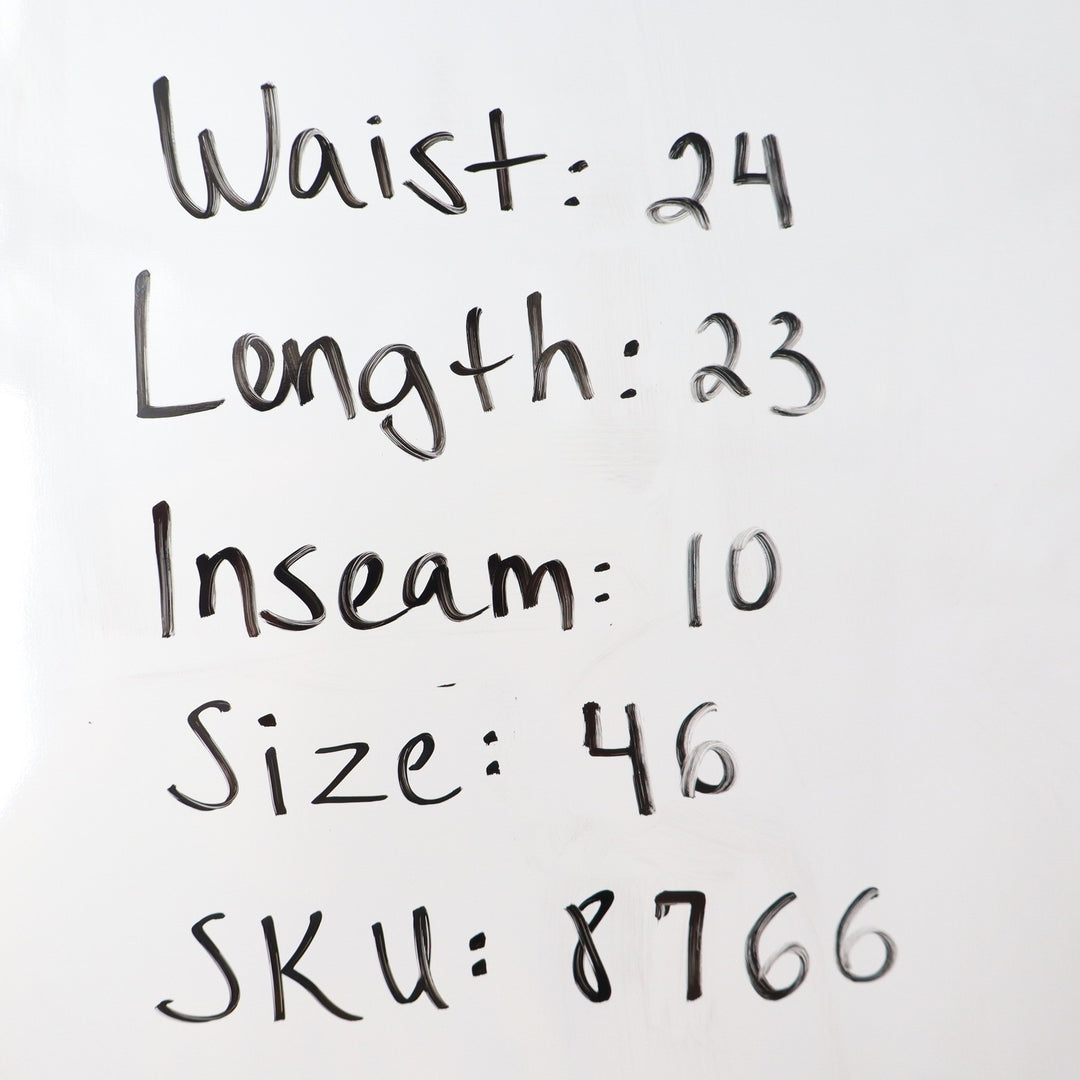 Waist: 24
Length: 23
Inseam: 10
Size: 46
SKU: 8766